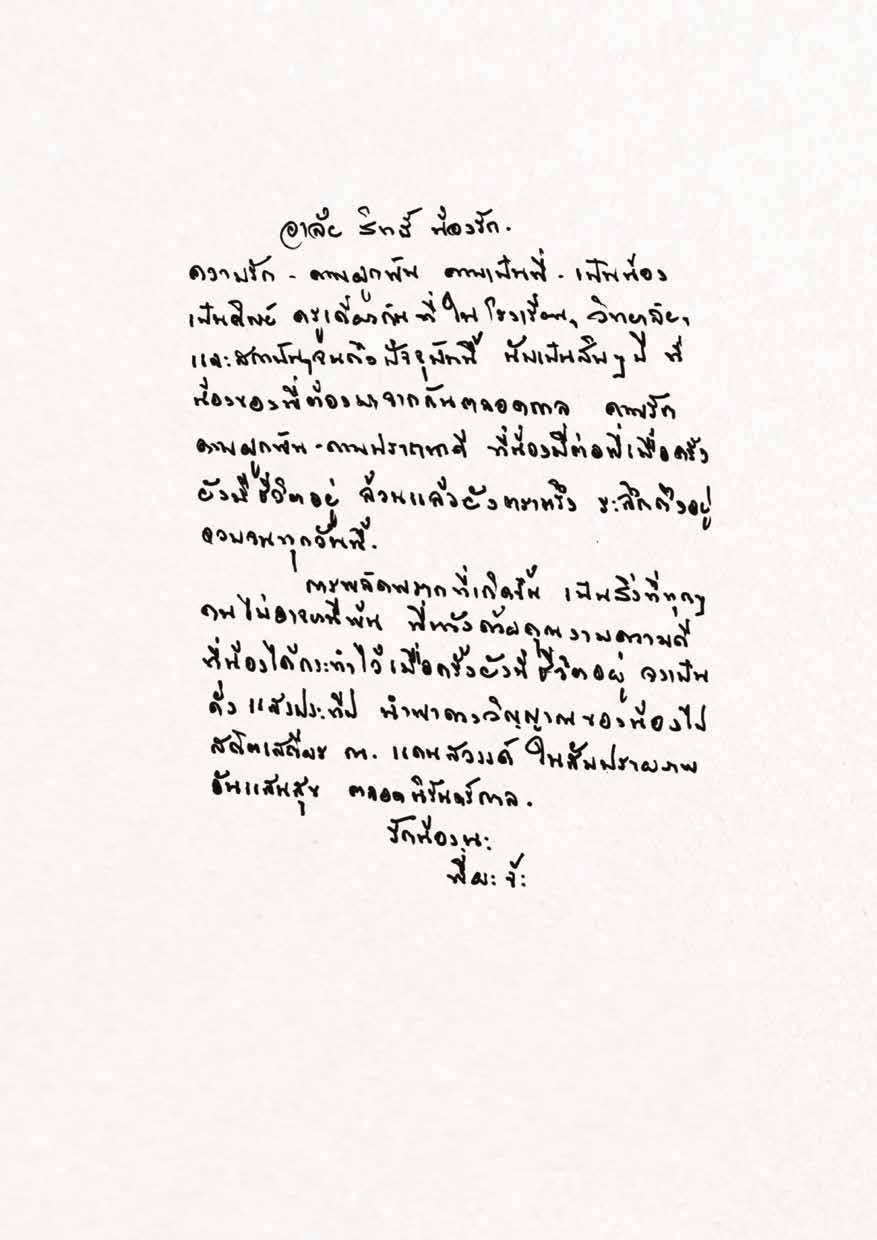 อาลัย สิทธิ์ น้องรัก.
ความรัก - ความผูกพัน ความเป็นพี่ - เป็นน้อง
เป็นศิษย์ ครูเดียวกัน ที่ ใน โรงเรียน, วิทยาลัย,
และสถาบันฯ จนถึง ปัจจุบันนี้ นับเป็นสิบๆ ปี ที่
น้องของพี่ต้องมาจากกันตลอดกาล ความรัก
ความผูกพัน - ความปรารถนาดี ที่น้องมีต่อพี่เมื่อครั้ง
ยังมีชีวิตอยู่ ล้วนแล้วยังตราตรึง ระลึกถึงอยู่
จวบจนทุกวันนี้.
การพลัดพรากที่เกิดขึ้น เป็นสิ่งที่ทุกๆ
คนไม่อาจหนีพ้น พี่หวังด้วยคุณงามความดี
ที่น้องได้กระทำไว้เมื่อครั้งยังมีชีวิตอยู่ จงเป็น
ดั่ง แสงประทีป นำพาดวงวิญญาณของน้องไป
สถิตเสถียร ณ. แดนสวรรค์ ในสัมปรายภพ
อันแสนสุข ตลอดนิรันดร์กาล.
รักน้องนะ